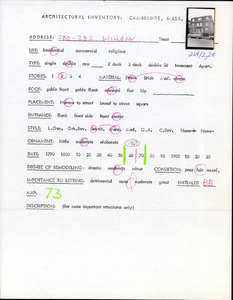 ARCHITECTURAL INVENTORY: CAMBRIDGE, MASS.
ADDRESS: 280-282 Windsor Tract
USE: Residential commercial religious
TYPE: single double row 2 deck 3 deck double 3d tenement Apart.
STORIES: 1 2 3 4 MATERIAL: Frame Brick Med. stone
ROOF: gable front gable flank mansard flat hip
PLACEMENT: Narrow to street broad to street square
ENTRANCE: flank front side front center
ORNAMENT: little moderate elaborate
DATE: 1750 1810 20 30 40 50 60 70 80 90 1900 10 20 30
DEGREE OF REMODELING: drastic moderate minor CONDITION: poor fair excel.
IMPORTANCE TO SETTING: detrimental none moderate great INITIALED BB
MAP: 73
DESCRIPTION: (for more important structures only)